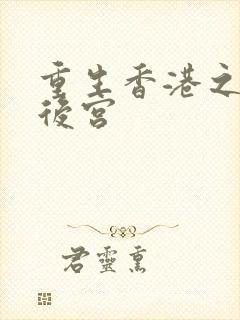 重生香港之
後宮
君靈熏